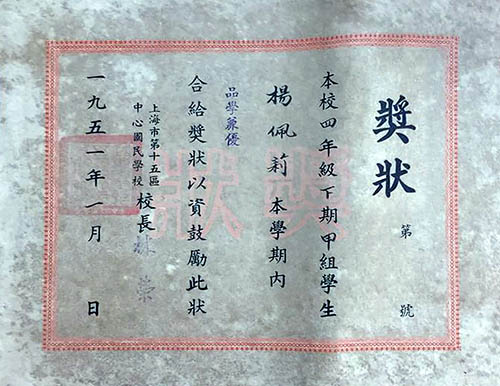 獎狀
第 號
本校四年級下期甲組學生
楊佩莉本學期內
品學兼優
合給獎狀以資鼓勵此狀
上海市第十五區
中心國民學校
校長
一九五一年一月 日
獎狀